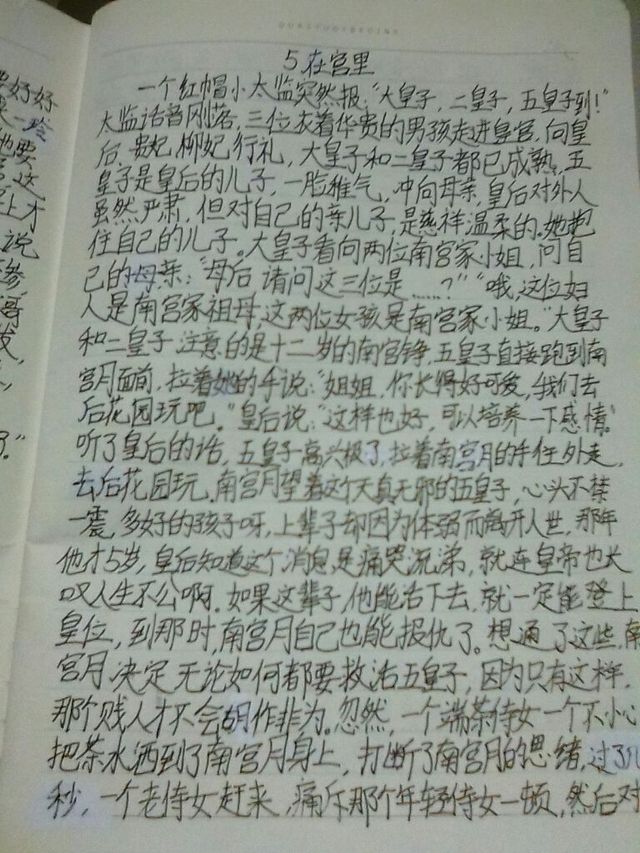 5.在宫里
一个红帽小太监突然报:"大皇子,二皇子,五皇子到!"
太监话音刚落,三位衣着华贵的男孩走进皇宫,向皇
后,贵妃,柳妃行礼,大皇子和二皇子都已成熟,五
皇子是皇后的儿子,一脸稚气,冲向母亲,皇后对外人
虽然严肃,但对自己的亲儿子,是慈祥温柔的。她抱
住自己的儿子。大皇子看向两位南宫家小姐,问自
己的母亲:"母后 请问这三位是……?""哦,这位妇
人是南宫家祖母,这两位女孩是南宫家小姐。"大皇子
和二皇子注意的是十二岁的南宫铮,五皇子直接跑到南
宫月面前,拉着她的手说:"姐姐,你长得好可爱,我们去
后花园玩吧。"皇后说:"这样也好,可以培养一下感情。"
听了皇后的话,五皇子高兴极了,拉着南宫月的手往外走,
去后花园玩,南宫月望着这个天真无邪的五皇子,心头不禁
一震,多好的孩子呀,上辈子却因为体弱而离开人世,那年
他才5岁,皇后知道这个消息,是痛哭流涕,就连皇帝也长
叹人生不公啊。如果这辈子,他能活下去,就一定能登上
皇位,到那时,南宫月自己也能报仇了。想通了这些,南
宫月决定无论如何都要救活五皇子,因为只有这样,
那个贱人才不会胡作非为。忽然,一个端茶侍女一个不小心
把茶水洒到了南宫月身上,打断了南宫月的思绪,过了几
秒,一个老侍女赶来,痛斥那个年轻侍女一顿,然后对